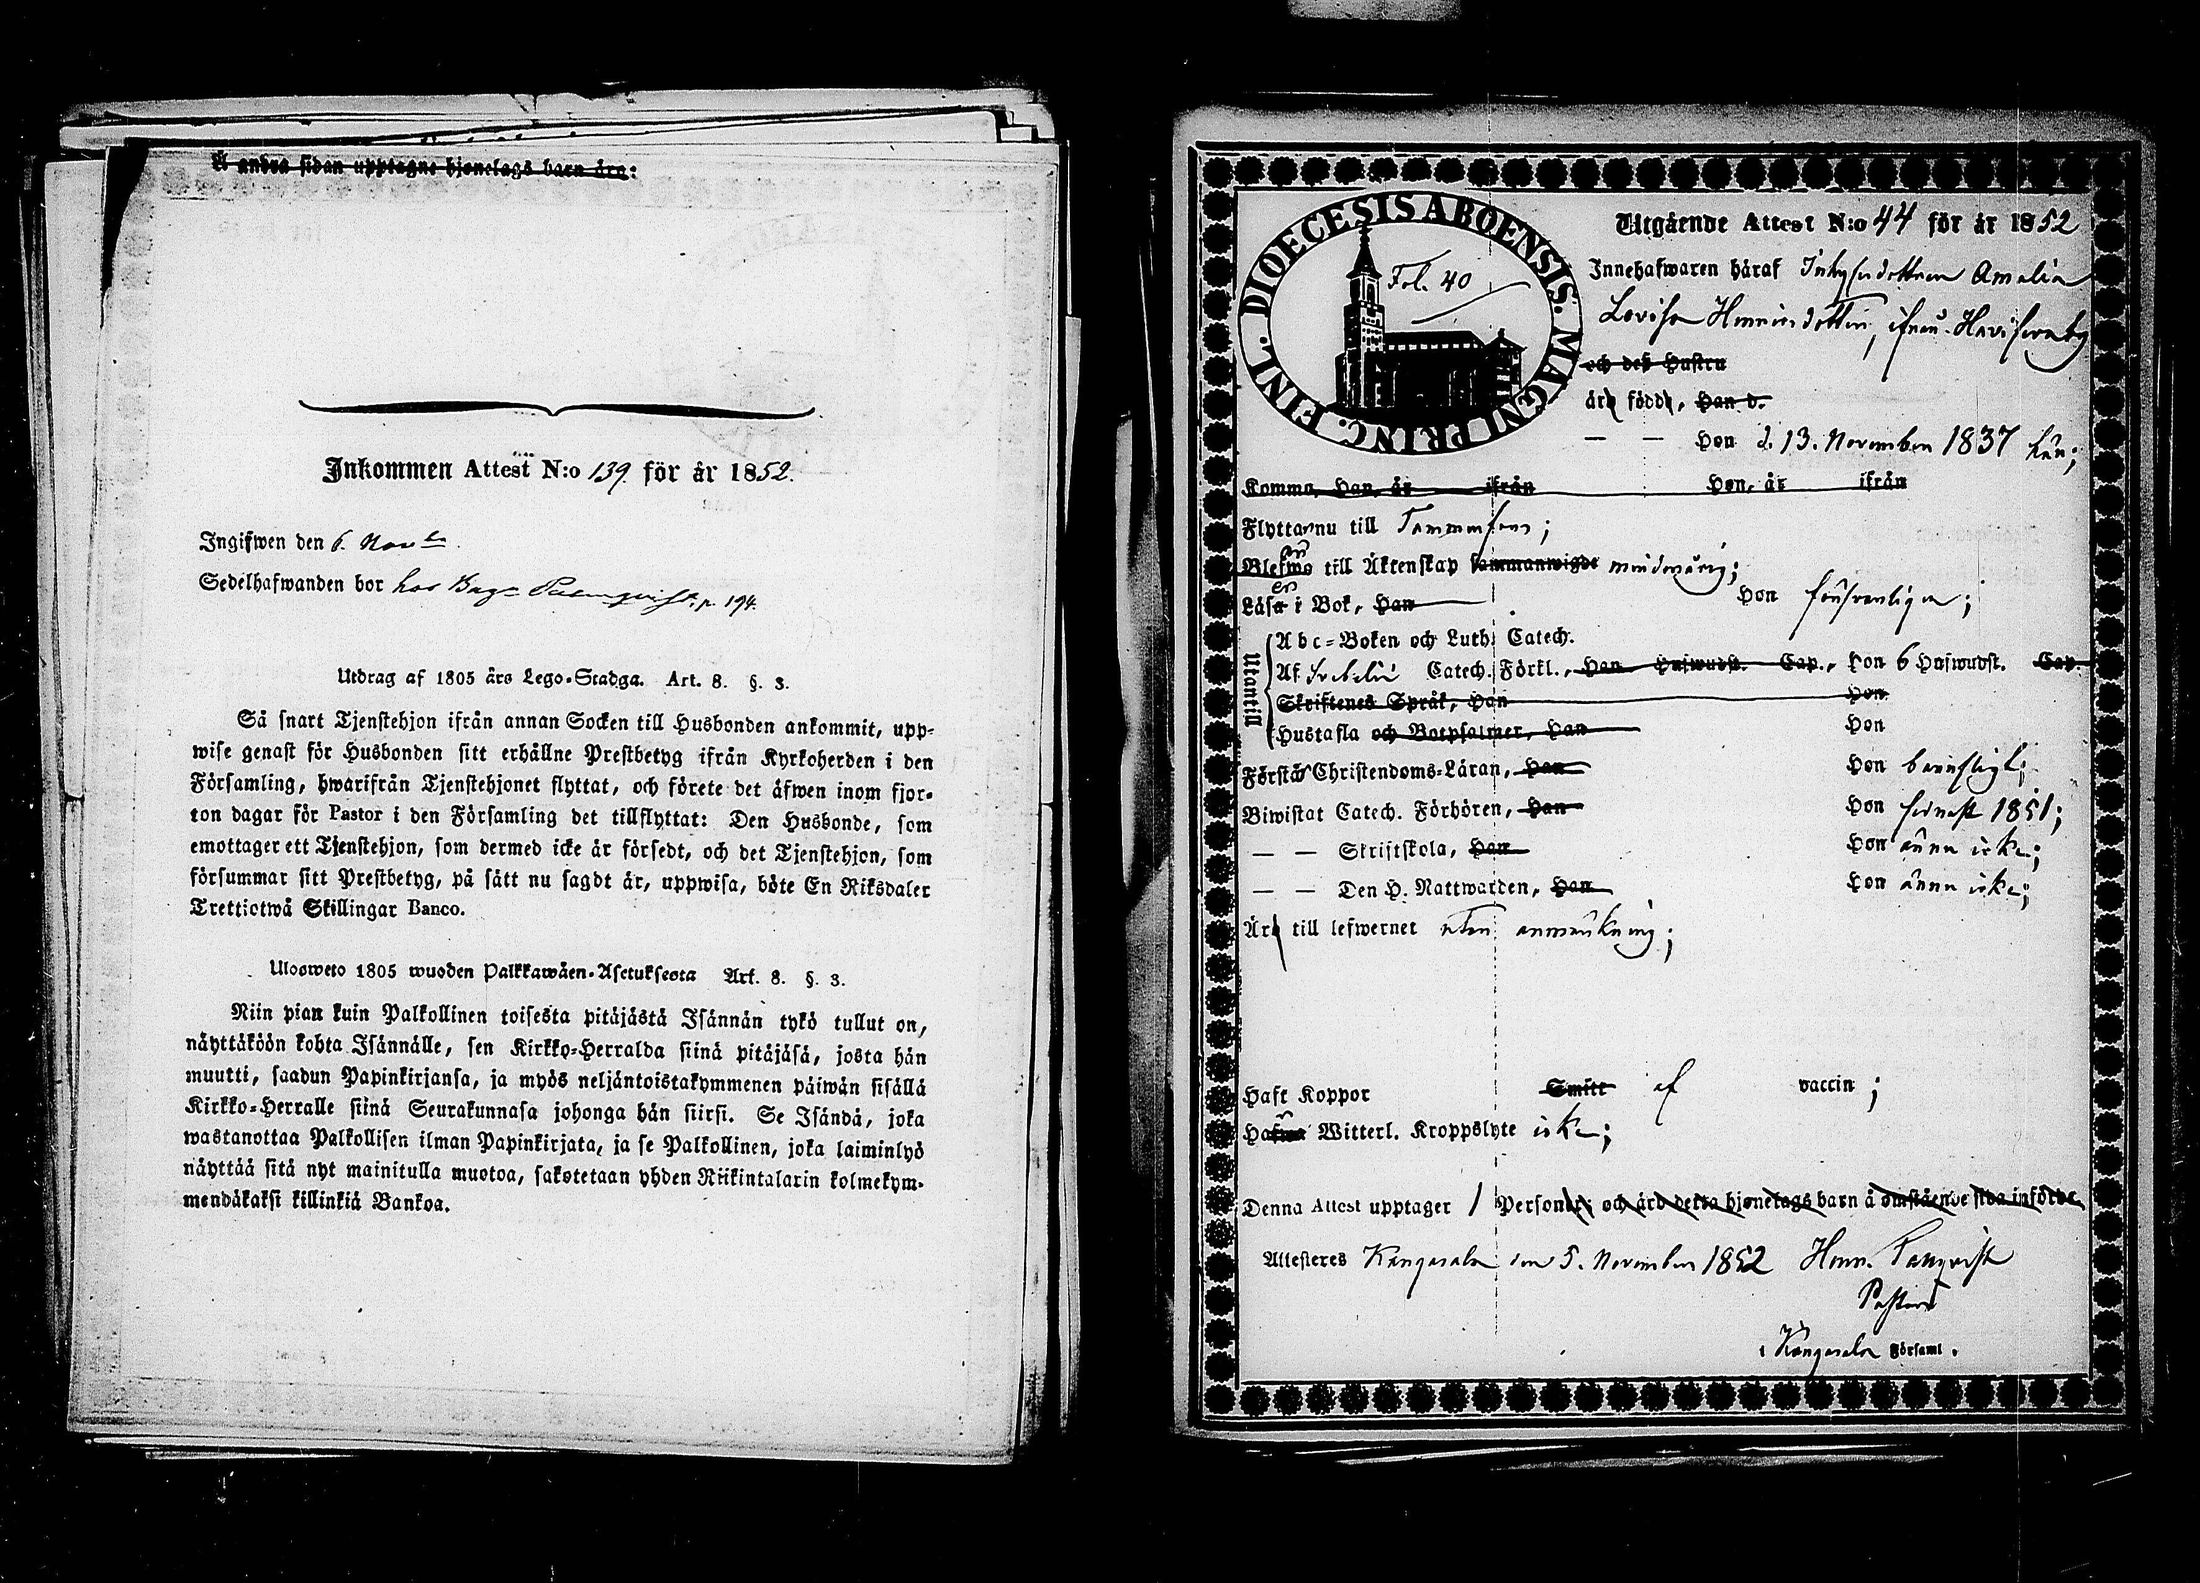 Å andra sidan upptagne hjonelags barn äro:
Inkommen Attest N:o 139. för år 1852.
Ingifwen den 6. Nov
Sedelhafwanden bor hos p. 194.
Utdrag af 1805 års Lego-Stadga. Art. 8. §. 3.
Så snart Tjenstehjon ifrån annan Socken till Husbonden ankommit, upp-
wise genast för Husbonden sitt erhållne Prestbetyg ifrån Kyrkoherden i den
Församling, hwarifrån Tjenstehjonet flyttat, och förete det äfwen inom fjor-
ton dagar för Pastor i den Församling det tillflyttat: Den Husbonde, som
emottager ett Tjenstehjon, som dermed icke är försedt, och det Tjenstehjon, som
försummar sitt Prestbetyg, på sätt nu sagdt är, uppwisa, böte En Riksdaler
Trettiotwå Skillingar Banco.
Ulosweto 1805 wuoden Palkkawäen-Asetuksesta Art. 8. §. 3.
Niin pian kuin Palkollinen toisesta pitäjästä Isännän tykö tullut on,
näyttäköön kohta Isännälle, sen Kirkko-Herralda siinä pitäjäsä, josta hän
muutti, saadun Papinkirjansa, ja myös neljäntoistakymmenen päiwän sisällä
Kirkko-Herralle siinä Seurakunnasa johonga hän siirsi. Se Isändä, joka
wastanottaa Palkollisen ilman Papinkirjata, ja se Palkollinen, joka laiminlyö
näyttää sitä nyt mainitulla muotoa, sakotetaan yhden Riikintalarin kolmekym-
mendäkaksi killinkiä Bankoa.
DIOECESIS ABOENSIS. MAGNI PRINC. FINL.
Fol. 40
Utgående Attest N:o 44 för år 1852
Innehafwaren häraf Inhysesdottren Amalia
Lovisa Henricsdotter, ifrån
och deß Hustru
äro födde, Han d.
— — Hon d. 13. November 1837 här;
Komma, Han, år ifrån Hon, år ifrån
Flytta nu till Tammerfors;
Blefwo till Äktenskap sammanwigde minderårig;
Läsa i Bok, Han Hon försvarligen;
Utantill
Abc-Boken och Luth. Catech.
Af Svebelii Catech. Förkl., Han Hufwudst. Cap., Hon 6 Hufwudst. Cap.
Skriftenes Språk, Han Hon
Hustafla och Botpsalmer, Han Hon
Förstå Christendoms-Läran, Han Hon
Biwistat Catech. Förhören, Han Hon senast 1851;
— — Skriftskola, Han Hon ännu icke;
— — Den H. Nattwarden, Han Hon ännu icke;
Äro till lefwernet utan anmärkning;
Haft Koppor Smitt af vaccin;
Hafwa Witterl. Kroppslyte icke;
Denna Attest upptager 1 Personer; och äro detta hjonelags barn å omstående sida införde.
Attesteres Kangasala den 5. November 1852 Henr.
Pastor
i Kangasala Församl.